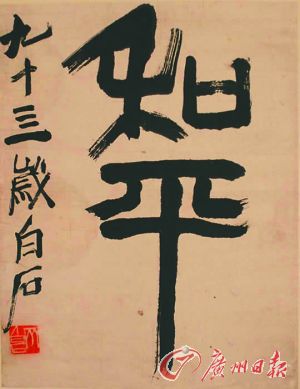 和平
九十三歲白石
廣州日報